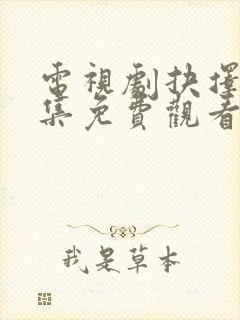 電視劇抉擇
集免費觀看
我是草本